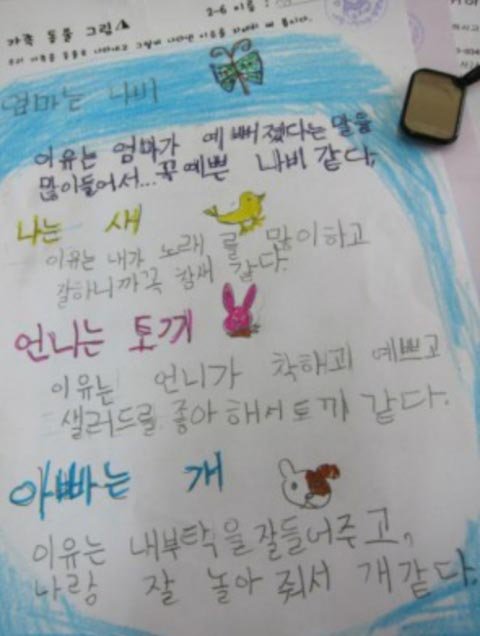 2-6 이름:
가족 동물 그림
엄마는 나비
이유는 엄마가 예뻐졌다는 말을
많이들어서... 꼭 예쁜 나비 같다.
나는 새
이유는 내가 노래를 많이하고
잘하니까꼭 참새 같다.
언니는 토끼
이유는 언니가 착해고 예쁘고
샐러드를 좋아해서토끼 같다.
아빠는 개
이유는 내부탁을잘들어주고,
나랑 잘 놀아 줘서 개같다.